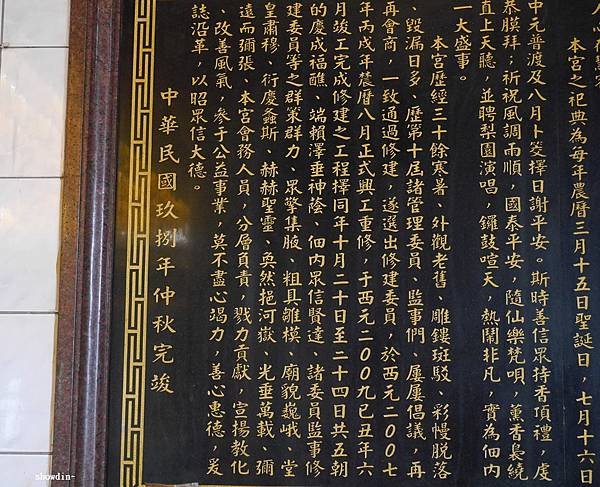 本宮之祀典為每年農曆三月十五日聖誕日,七月十六日
中元普渡及八月卜筊擇日謝平安。斯時善信眾持香頂禮,虔
恭膜拜;祈祝風調雨順,國泰平安,隨仙樂梵唄,薰香裊繞
直上天聽,並聘梨園演唱,鑼鼓喧天,熱鬧非凡,實為佃內
一大盛事。
本宮歷經三十餘寒暑、外觀老舊、雕鏤斑駁、彩幔脫落
、毀漏日多,歷第十屆諸管理委員、監事們、屢屢倡議,再
再會商,一致通過修建,遂選出修建委員,於西元二00七
年丙戌年農曆八月正式興工重修,于西元二00九己丑年六
月竣工完成修建之工程擇同年十月二十日至二十四日共五朝
的慶成福醮、端賴澤垂神蔭、佃內眾信賢達、諸委員監事修
建委員等之群策群力、眾擎集腋、粗具雛模、廟貌巍峨、堂
皇肅穆、衍慶螽斯、赫赫聖靈、奐然挹河嶽、光垂萬載、彌
遠而彌張、本宮會務人員,分層負責,戮力貢獻、宣揚教化
、改善風氣,參于公益事業,莫不盡心竭力,善心惠德,爰
誌沿革,以昭眾信大德。
中華民國玖捌年仲秋完竣
showdin~